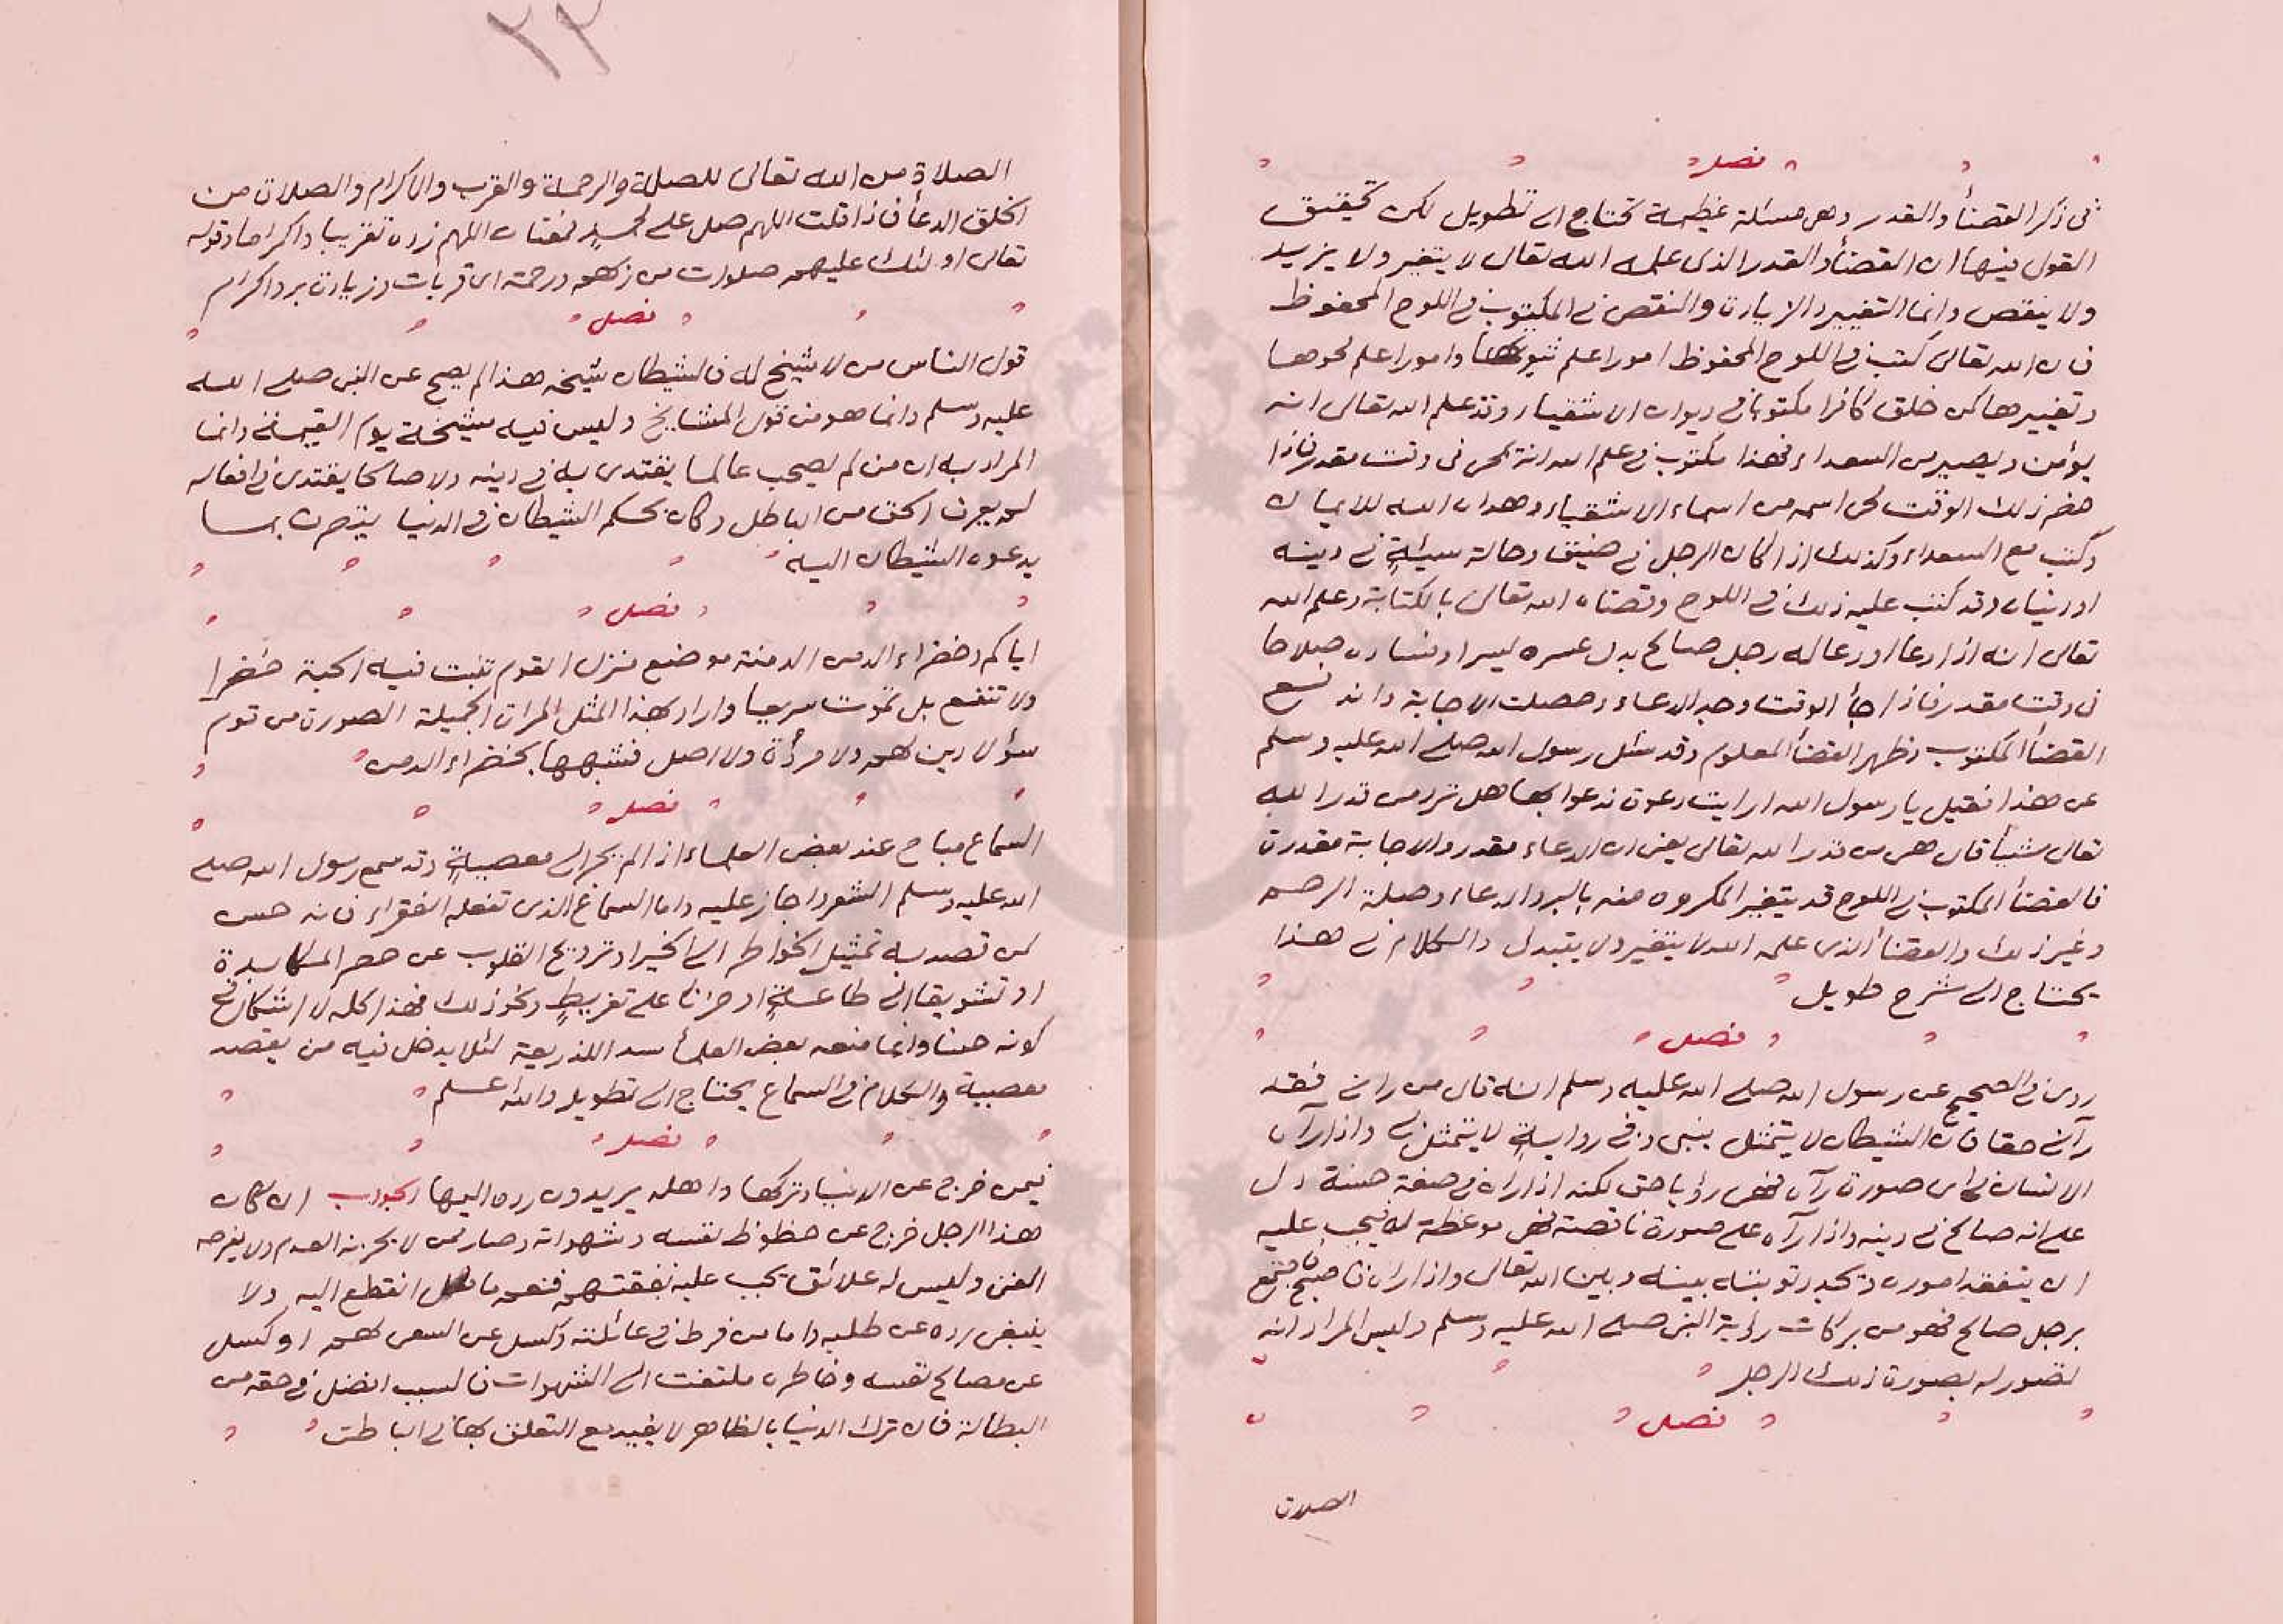 فصل
في ذكر القضأ والقدر وهي مسئلة عظيمة تحتاج الى تطويل لكن تحقيق
القول فيها ان القضأ والقدر الذى علمه الله تعالى لا يتغير ولا يزيد
ولا ينقص وانما التغيير والازيادة والنقص في المكتوب في اللوح المحفوظ
فان الله تعالى كتب في اللوح المحفوظ امورا علم ثبوتها وامورا علم محوها
وتغييرها كمن خلق كافرا مكتوبا في ديوان الاشقياء وقد علم الله تعالى انه
يؤمن ويصير من السعداء فهذا مكتوب في علم الله انه يمحى في وقت مقدر فاذا
حضر ذلك الوقت محى اسمه من اسماء الاشقياء وهداه الله للايمان
وكتب مع السعداء وكذلك اذا كان الرجل في ضيق وحالة سيئةٍ في دينه
او دنياه وقد كتب عليه ذلك في اللوح وقضاه الله تعالى بالكتابة وعلم الله
تعالى انه اذا دعا او دعا له رجل صالح بدل عسره ليسرا وفساده صلاحا
في وقت مقدر فاذا جأ الوقت وجد الدعاء وحصلت الاجابة وانفسخ
القضأ المكتوب وظهر القضأ المعلوم وقد سئل رسول الله صلى الله عليه وسلم
عن هذا فقيل يا رسول الله ارايت دعوة ندعوا بها هل ترد من قدر الله
تعالى شيأ قال هي من قدر الله تعالى يعنى ان الدعاء مقدر والاجابة مقدرة
فالقضأ المكتوب في اللوح قد يتغير المكروه منه بالبر والدعاء وصلة الرحم
وغير ذلك والقضأ الذى علمه الله لا يتغير ولا يتبدل والكلام في هذا
يحتاج الى شرح طويل
فصل
روى في الصحيح عن رسول الله صلى الله عليه وسلم انه قال من رانى فقد
رآنى حقا فان الشيطان لا يتمثل بنبى وفي روايةٍ لا يتمثل بى واذا رآه
الانسان في اى صورة رآه فهى رؤيا حق لكنه اذا راه في صفة حسنة دل
على انه صالح في دينه واذا رآه على صورة ناقصة فهى موعظة له فيجب عليه
ان يتفقد اموره وتجدد توبته بينه وبين الله تعالى واذا راه فاصبح فاجتمع
برجل صالح فهو من بركات رؤية النبى صلى الله عليه وسلم وليس المراد انه
تصور له بصورة ذلك الرجل
فصل
الصلاة
٢٢
الصلاة من الله تعالى للصلة والرحمة والقرب والاكرام والصلاة من
الخلق الدعأ فاذا قلت اللهم صل على محمدٍ فمعناه اللهم زده تقريبا واكراما وقوله
تعالى اولئك عليهم صلوات من ربهم ورحمة اى قربات وزيادة بر واكرام
فصل
قول الناس من لا شيخ له فالشيطان شيخه هذا لم يصح عن النبى صلى الله
عليه وسلم وانما هو من قول المشايخ وليس فيه مشيخة يوم القيمة وانما
المراد به ان من لم يصحب عالما يقتدى به في دينه ولا صالحا يقتدى في افعاله
لم يعرف الحق من الباطل وكان بحكم الشيطان في الدنيا يتصرف بما
يدعوه الشيطان اليه
فصل
اياكم وخضراء الدمن الدمنة موضع منزل القوم تنبت فيه الحبة خضرا
ولا تنفع بل تموت سريعا واراد بهذا المثل المراة الجميلة الصورة من قوم
سؤ لا دين لهم ولا مروٴة ولا اصل فشبهها بخضراء الدمن
فصل
السماع مباح عند بعض العلماء اذا لم يجر الى معصيةٍ وقد سمع رسول الله صلى
الله عليه وسلم الشعر واجاز عليه واما السماع الذى تفعله الفقراء فانه حسن
لمن قصد به تمثيل الخواطر الى الخير او ترويح القلوب عن هم المكابدة
او تشويقا الى طاعةٍ او حزنا على تفريطٍ ونحو ذلك فهذا كله لا اشكال في
كونه حسنا وانما منعه بعض العلمأ سد اللذريعة لئلا يدخل فيه من يقصد
معصية والكلام في السماع يحتاج الى تطويل والله اعلم
فصل
فيمن خرج عن الدنيا وتركها واهله يريدون رده اليها الجواب ان كان
هذا الرجل خرج عن حظوظ نفسه وشهواته وصار ممن لا يحزنه العدم ولا يفرحه
الغنى وليس له علائق يجب عليه نفقتهم فنعم ما فعل انقطع اليه ولا
ينبغى رده عن طلبه واما من فرط في عائلته وكسل عن السعى لهم او كسل
عن مصالح نفسه وخاطره ملتفت الى الشهوات فالسبب افضل في حقه من
البطالة فان ترك الدنيا بالظاهر لا يفيد مع التعلق بها في الباطن